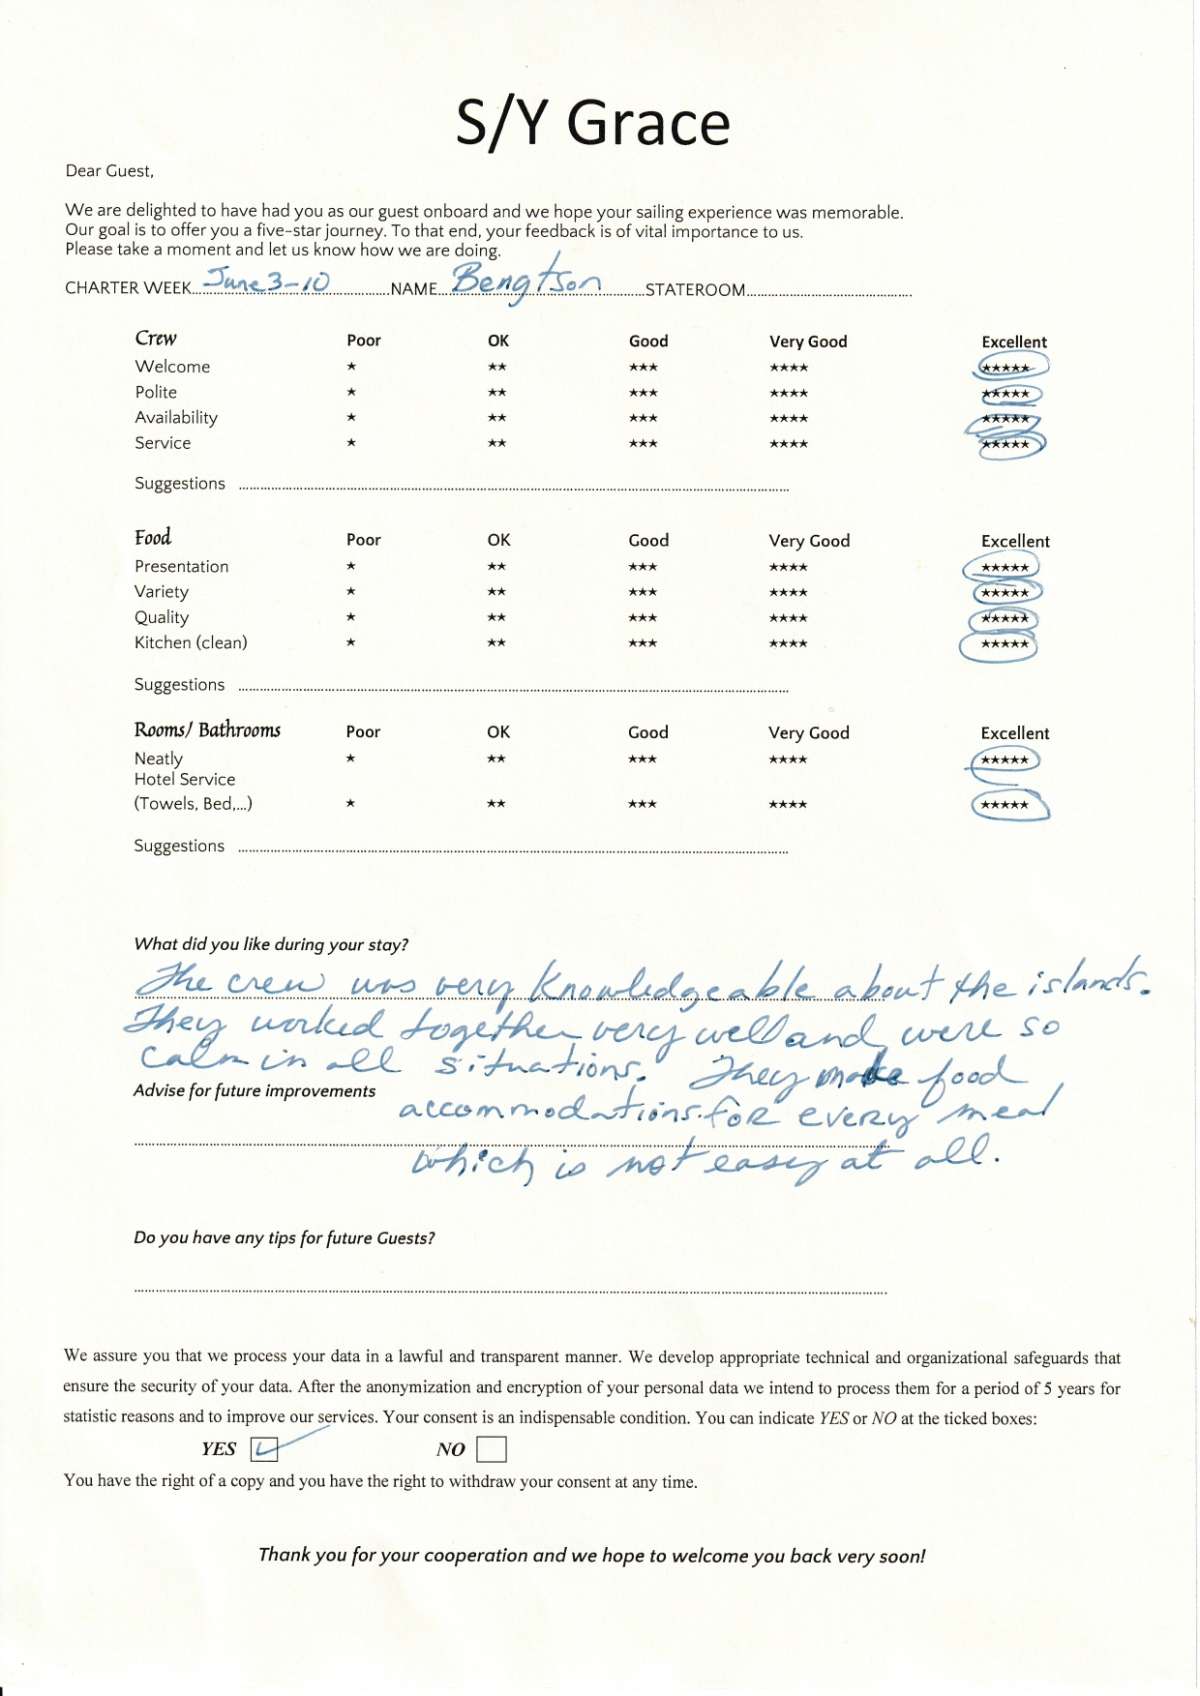 S/Y Grace
Dear Guest,
We are delighted to have had you as our guest onboard and we hope your sailing experience was memorable.
Our goal is to offer you a five-star journey. To that end, your feedback is of vital importance to us.
Please take a moment and let us know how we are doing.
CHARTER WEEK June 3-10 NAME Bengtson STATEROOM
Crew Poor OK Good Very Good Excellent
Welcome ★ ★★ ★★★ ★★★★ ★★★★★
Polite ★ ★★ ★★★ ★★★★ ★★★★★
Availability ★ ★★ ★★★ ★★★★ ★★★★★
Service ★ ★★ ★★★ ★★★★ ★★★★★
Suggestions
Food Poor OK Good Very Good Excellent
Presentation ★ ★★ ★★★ ★★★★ ★★★★★
Variety ★ ★★ ★★★ ★★★★ ★★★★★
Quality ★ ★★ ★★★ ★★★★ ★★★★★
Kitchen (clean) ★ ★★ ★★★ ★★★★ ★★★★★
Suggestions
Rooms/ Bathrooms Poor OK Good Very Good Excellent
Neatly ★ ★★ ★★★ ★★★★ ★★★★★
Hotel Service
(Towels, Bed,...) ★ ★★ ★★★ ★★★★ ★★★★★
Suggestions
What did you like during your stay?
The crew was very knowledgeable about the islands.
They worked together very well and were so
calm in all situations. They make food
Advise for future improvements
accommodations for every meal
which is not easy at all.
Do you have any tips for future Guests?
We assure you that we process your data in a lawful and transparent manner. We develop appropriate technical and organizational safeguards that
ensure the security of your data. After the anonymization and encryption of your personal data we intend to process them for a period of 5 years for
statistic reasons and to improve our services. Your consent is an indispensable condition. You can indicate YES or NO at the ticked boxes:
YES NO
You have the right of a copy and you have the right to withdraw your consent at any time.
Thank you for your cooperation and we hope to welcome you back very soon!